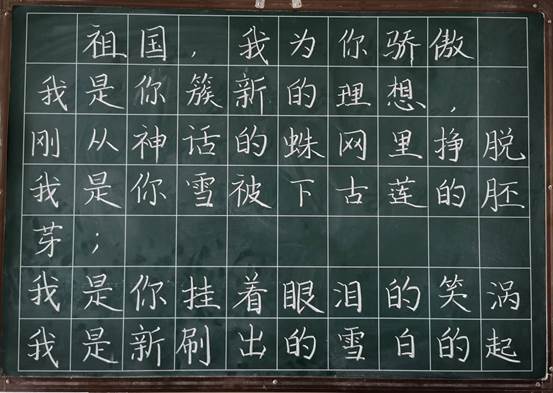 祖国，我为你骄傲
我是你簇新的理想，
刚从神话的蛛网里挣脱
我是你雪被下古莲的胚
芽；
我是你挂着眼泪的笑涡
我是新刷出的雪白的起